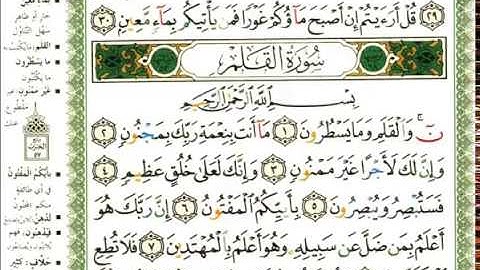 ٢٩ قُلْ أَرَءَيْتُمْ إِنْ أَصْبَحَ مَآؤُكُمْ غَوْرًا فَمَن يَأْتِيكُم بِمَآءٍ مَّعِينٍۭ ٣٠
سُورَةُ القَلَمِ
بِسْمِ ٱللَّهِ ٱلرَّحْمَٰنِ ٱلرَّحِيمِ
نٓ ۚ وَٱلْقَلَمِ وَمَا يَسْطُرُونَ ١ مَآ أَنتَ بِنِعْمَةِ رَبِّكَ بِمَجْنُونٍ ٢
وَإِنَّ لَكَ لَأَجْرًا غَيْرَ مَمْنُونٍ ٣ وَإِنَّكَ لَعَلَىٰ خُلُقٍ عَظِيمٍ ٤
فَسَتُبْصِرُ وَيُبْصِرُونَ ٥ بِأَييِّكُمُ ٱلْمَفْتُونُ ٦ إِنَّ رَبَّكَ هُوَ
أَعْلَمُ بِمَن ضَلَّ عَن سَبِيلِهِۦ وَهُوَ أَعْلَمُ بِٱلْمُهْتَدِينَ ٧ فَلَا تُطِعِ
القَلَمِ
مَا يَسْطُرُونَ
يَكْتُبُونَ
غَيْرَ مَمْنُونٍ
بِأَييِّكُمُ المَفْتُونُ